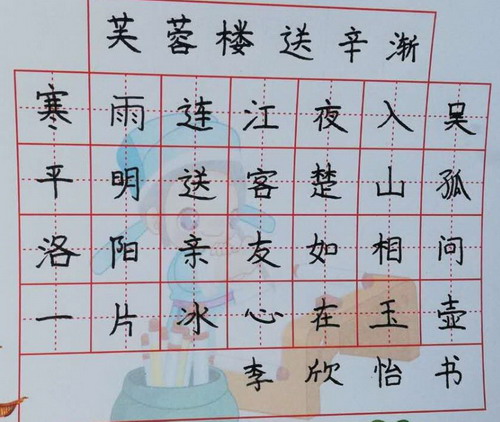 芙蓉楼送辛渐
寒雨连江夜入吴
平明送客楚山孤
洛阳亲友如相问
一片冰心在玉壶
李欣怡书